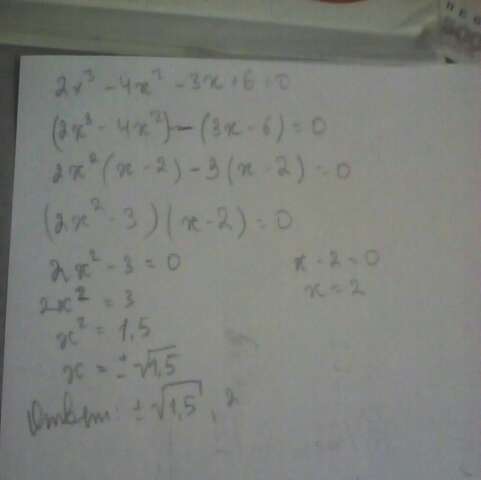 2x³ - 4x² - 3x + 6 = 0
(2x³ - 4x²) - (3x - 6) = 0
2x²(x - 2) - 3(x - 2) = 0
(2x² - 3)(x - 2) = 0
2x² - 3 = 0 x - 2 = 0
2x² = 3 x = 2
x² = 1,5
x = ±√1,5
Ответ: ±√1,5, 2